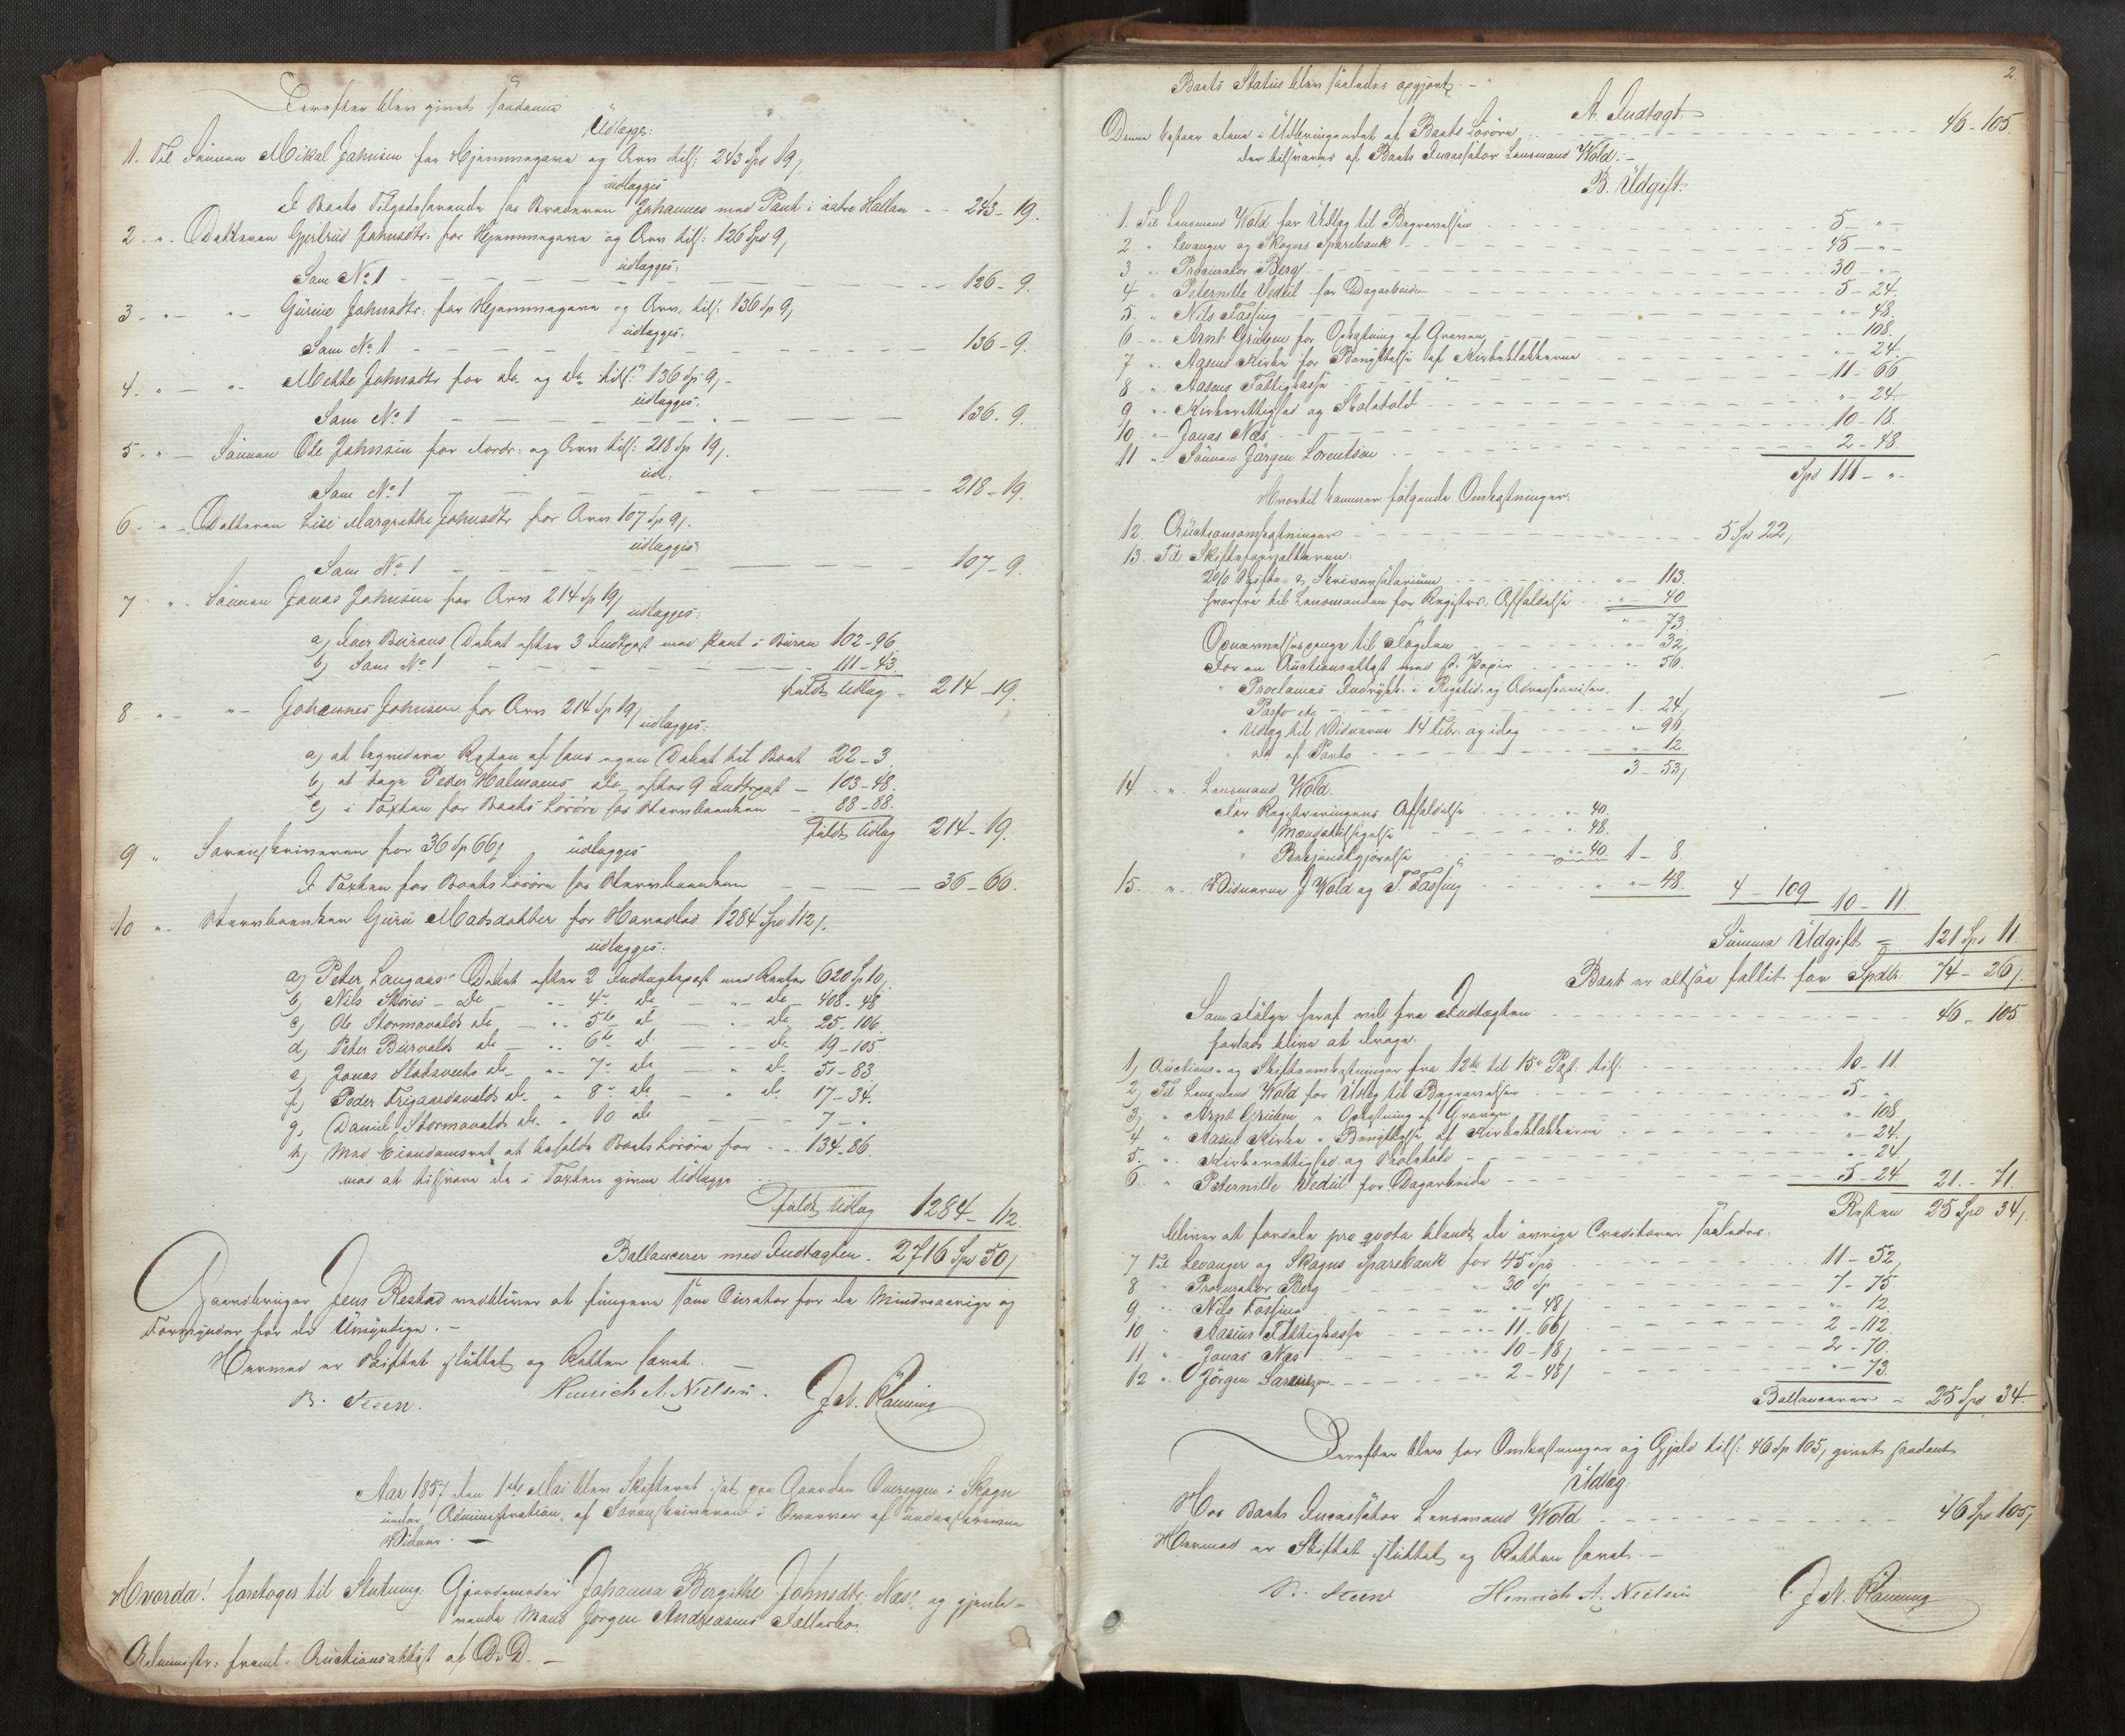 Derefter blev givet saadanne
Udlægge:
1. Til Sønnen Mikal Johnsen for Hjemmegave og Arv tils: 243 Spd 19,
udlægges
I Boets Tilgodehavende hos Broderen Johannes med Pant i østre Hallan - - 243-19.
2 - " - Datteren Gjertrud Johnsdtr: for Hjemmegave og Arv tils: 126 Spd 9,
udlægges:
Som No 1 - 126-9.
3 - " - " - Gurine Johnsdtr: for Hjemmegave og Arv, tils: 136 Sp 9,
udlægges.
Som No 1 - 136-9.
4. " - " - Mette Johnsdtr for do og do tils: 136 Sp 9, -
udlægges.
Som No 1 - 136-9.
5 " - Sønnen Ole Johnsen for Fordr: og Arv tils: 218 Sp 19,
udl:
Som No 1 - 218-19.
6 " - Datteren Lise Margrethe Johnsdtr for Arv 107 Sp 9,
udlægges
Som No 1 - 107-9.
7 " Sønnen Jonas Johnsen for Arv 214 Sp 19,
udlægges:
a, Buraas Debet efter 3 Indtpost med Pant i Buran 102-96
b, Som No 1 - 111-43
fuldt Udlæg - 214-19.
8 - " - " - Johannes Johnsen for Arv 214 Sp 19,
udlægges:
a, at liqvidere Resten af hans egen Debet til Boet 22-3
b, at tage Peder Halmoens do efter 9 Indtpost - 103-48.
c, i Taxten for Boets Løsøre hos Stervboenken - 88-88.
fuldt Udlæg 214-19.
9 " Sorenskriveren for 36 Sp 66,
udlægges
I Taxten for Boets Løsøre hos Stervboenken - 36-66.
10 " Stervboenken Guru Madsdatter for Havelod 1284 Spd 112,
udlægges:
a, Peter Langaas Debet efter 2 Indtægtspost med Renter 620 Sp 10,
b, Nils Skjøres - do - " 4de do - " do - 408-48
c, Ole Stormovalds do - " 5te do - " do 25-106.
d, Peter Burvalds do - " 6te do - " do 19-105
e, Jonas do - " 7de do - " do 51-83
f, Peder do - " 8de do - " do 17-34.
g, Daniel Stormovalds do " 10 do - 7 - "
h, Med Eiendomsret at beholde Boets Løsøre for - 134-86.
mod at tilsvare de i Taxten givne Udlægge
fuldt Udlæg 1284-112.
Ballancerer med Indtægten. 2716 Spd 50,
Gaardbruger Jens Restad vedbliver at fungere som Curator for de Mindreaarige og
Formynder for de Umyndige. -
Hermed er Skiftet sluttet og Retten hævet. -
B. Steen. Henrich A. Nielsen. J. N. Ræning
Aar 1857 den 1ste Mai blev Skifteret sat paa Gaarden i Skogn
under Administration af Sorenskriveren i Overvær af underskrevne
Vidner. -
Hvorda! foretoges til Slutning Gjordemoder Johanna Bergitte Johnsdtr: Næs og gjenle-
vende Mand Jørgen Andreasens Fællesbo.
Administr: freml. Auctionsattest af D: D. -
2
Boets Status blev saaledes opgjort -
A. Indtægt.
Denne bestaar alene i Udbringendet af Boets Løsøre - 46-105.
der tilsvares af Boets Incassator Lensmand Wold: -
B. Udgift.
1. Til Lensmand Wold for Udlæg til Begravelsen - 5 - " -
2 " Levanger og Skogns Sparebank - 45 - " -
3 " Procurator Berg - 30 - " -
4 " Peternille Vedul for Dagarbeide - 5-24.
5. " Nils Fossing - " - 48.
6 " Arnt Gruben for Opkastning af Graven - " - 108.
7 " Aasens Kirke for Benyttelse af Kirkeklokkerne - " - 24.
8 " Aasens Fattigkasse - 11-66
9 " Kirkerettighed og Skoletold - " - 24.
10 " Jonas Næs - 10-18.
11 " Sønnen Jørgen Lorentsen - 2-48
Spd 111 - " -
Hvortil kommer følgende Omkostninger:
12. Auctionsomkostninger - 5 Spd 22,
13. Til Skifteforvalteren:
2 0/0 Skifte- & Skriversalarium - " - 113.
hvorfra til Lensmanden for Registr. Afholdelse - " - 40
" - 73
Opnævnelsespenge til Fogden - " - 32,
For en Auctionsattest med st. Papir - " - 56.
" Proclamas Indrykk: i Rigstid. og Adresseavisen.
Porto etc - 1. 24,
" Udlæg til Vidnerne 14 Febr. og idag - " - 96,
" do af Porto - " - 12
3-53,
14 " Lensmand Wold.
For Registreringens Afholdelse - " 40.
" - " 48.
" Bekjendtgjørelse - " 40. 1-8.
15. " Vidnerne J Wold og T Fossing - " - 48.
4-109 10-11.
Summa Udgift = 121 Spd 11.
Boet er altsaa fallit for Spdlr: 74-26,
Som Følge heraf vil fra Indtægten - 46-105
forlods blive at drage.
1, Auctions- og Skifteomkostninger fra 12te til 15de Post tils. - 10-11.
2, Til Lensmand Wold for Udlæg til Begravelsen - 5 - "
3, " Arnt Gruben " Opkastning af Graven - " - 108.
4 " Aasens Kirke " Benyttelse af Kirkeklokkerne - " - 24.
5. " Kirkerettighed og Skoletold - " - 24.
6 " Peternille Vedul for Dagarbeide - 5-24 21-71.
Resten 25 Spd 34,
bliver at fordele pro qvota blandt de øvrige Creditorer saaledes.
7 Til Levanger og Skogns Sparebank for 45 Spd - 11-52,
8 " Procurator Berg - " 30 Sp - 7-75.
9. " Nils Fossing - " " - 48, - " 12.
10 " Aasens Fattigkasse - " 11-66, - 2-112.
11 " Jonas Næs - " 10-18, - 2-70.
12 " Jörgen Larentzen - " 2-48, - " - 73.
Ballancerer - 25 Spd 34.
Derefter blev for Omkostninger og Gjeld tils: 46 Sp 105, givet saadant
Udlæg.
Hos Boets Incassator Lensmand Wold - 46 Spd 105,
Hermed er Skiftet sluttet og Retten hævet. -
B. Steen Henrich A. Nielsen J. N. Ræning